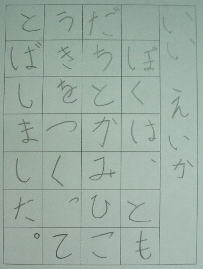 いい えいか
ぼくは、とも
だちとかみひこ
うきをつくって
とばしました。